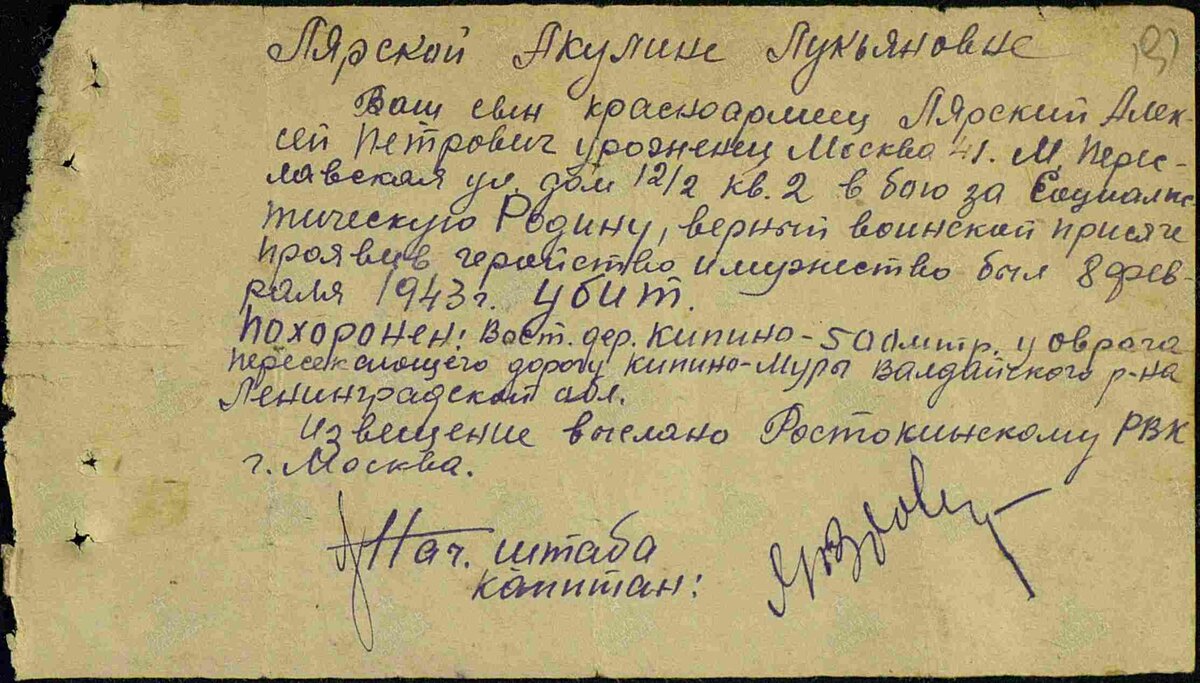 Лярской Акулине Лукьяновне
Ваш сын красноармеец Лярский Алек-
сей Петрович уроженец Москва 41. М. Перес-
лавская ул. дом 12/2 кв. 2 в бою за Социалис-
тическую Родину, верный воинской присяге
проявив геройство и мужество был 8 фев-
раля 1943 г. убит.
Похоронен: Вост. дер. Кипино - 500 мтр. у оврага
пересекающего дорогу Кипино-Муры Валдайского р-на
Ленинградской обл.
Извещение выслано Ростокинскому РВК
г. Москва.
Нач. штаба
капитан: